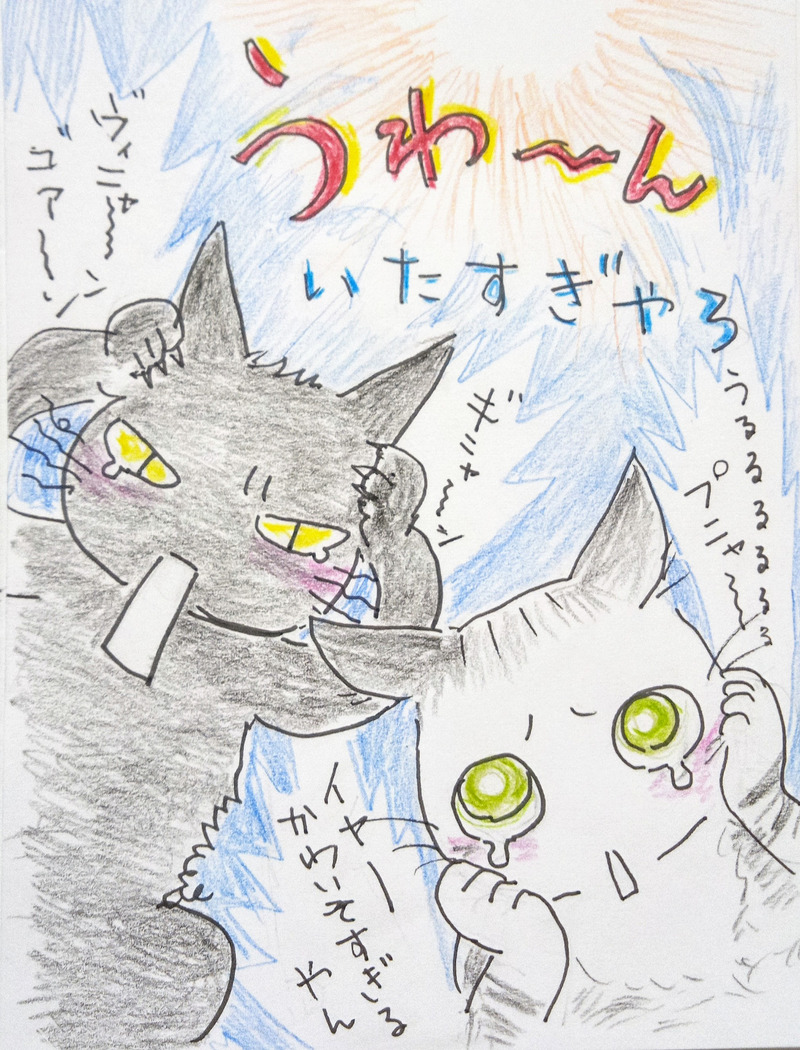 うわ〜ん
いたすぎやろ
ヴィニャ〜〜ン
ゴア〜〜ッ
ギニャ〜〜ッ
うるるるるるるる
プニャ〜〜
イヤー
かわいそすぎる
やん